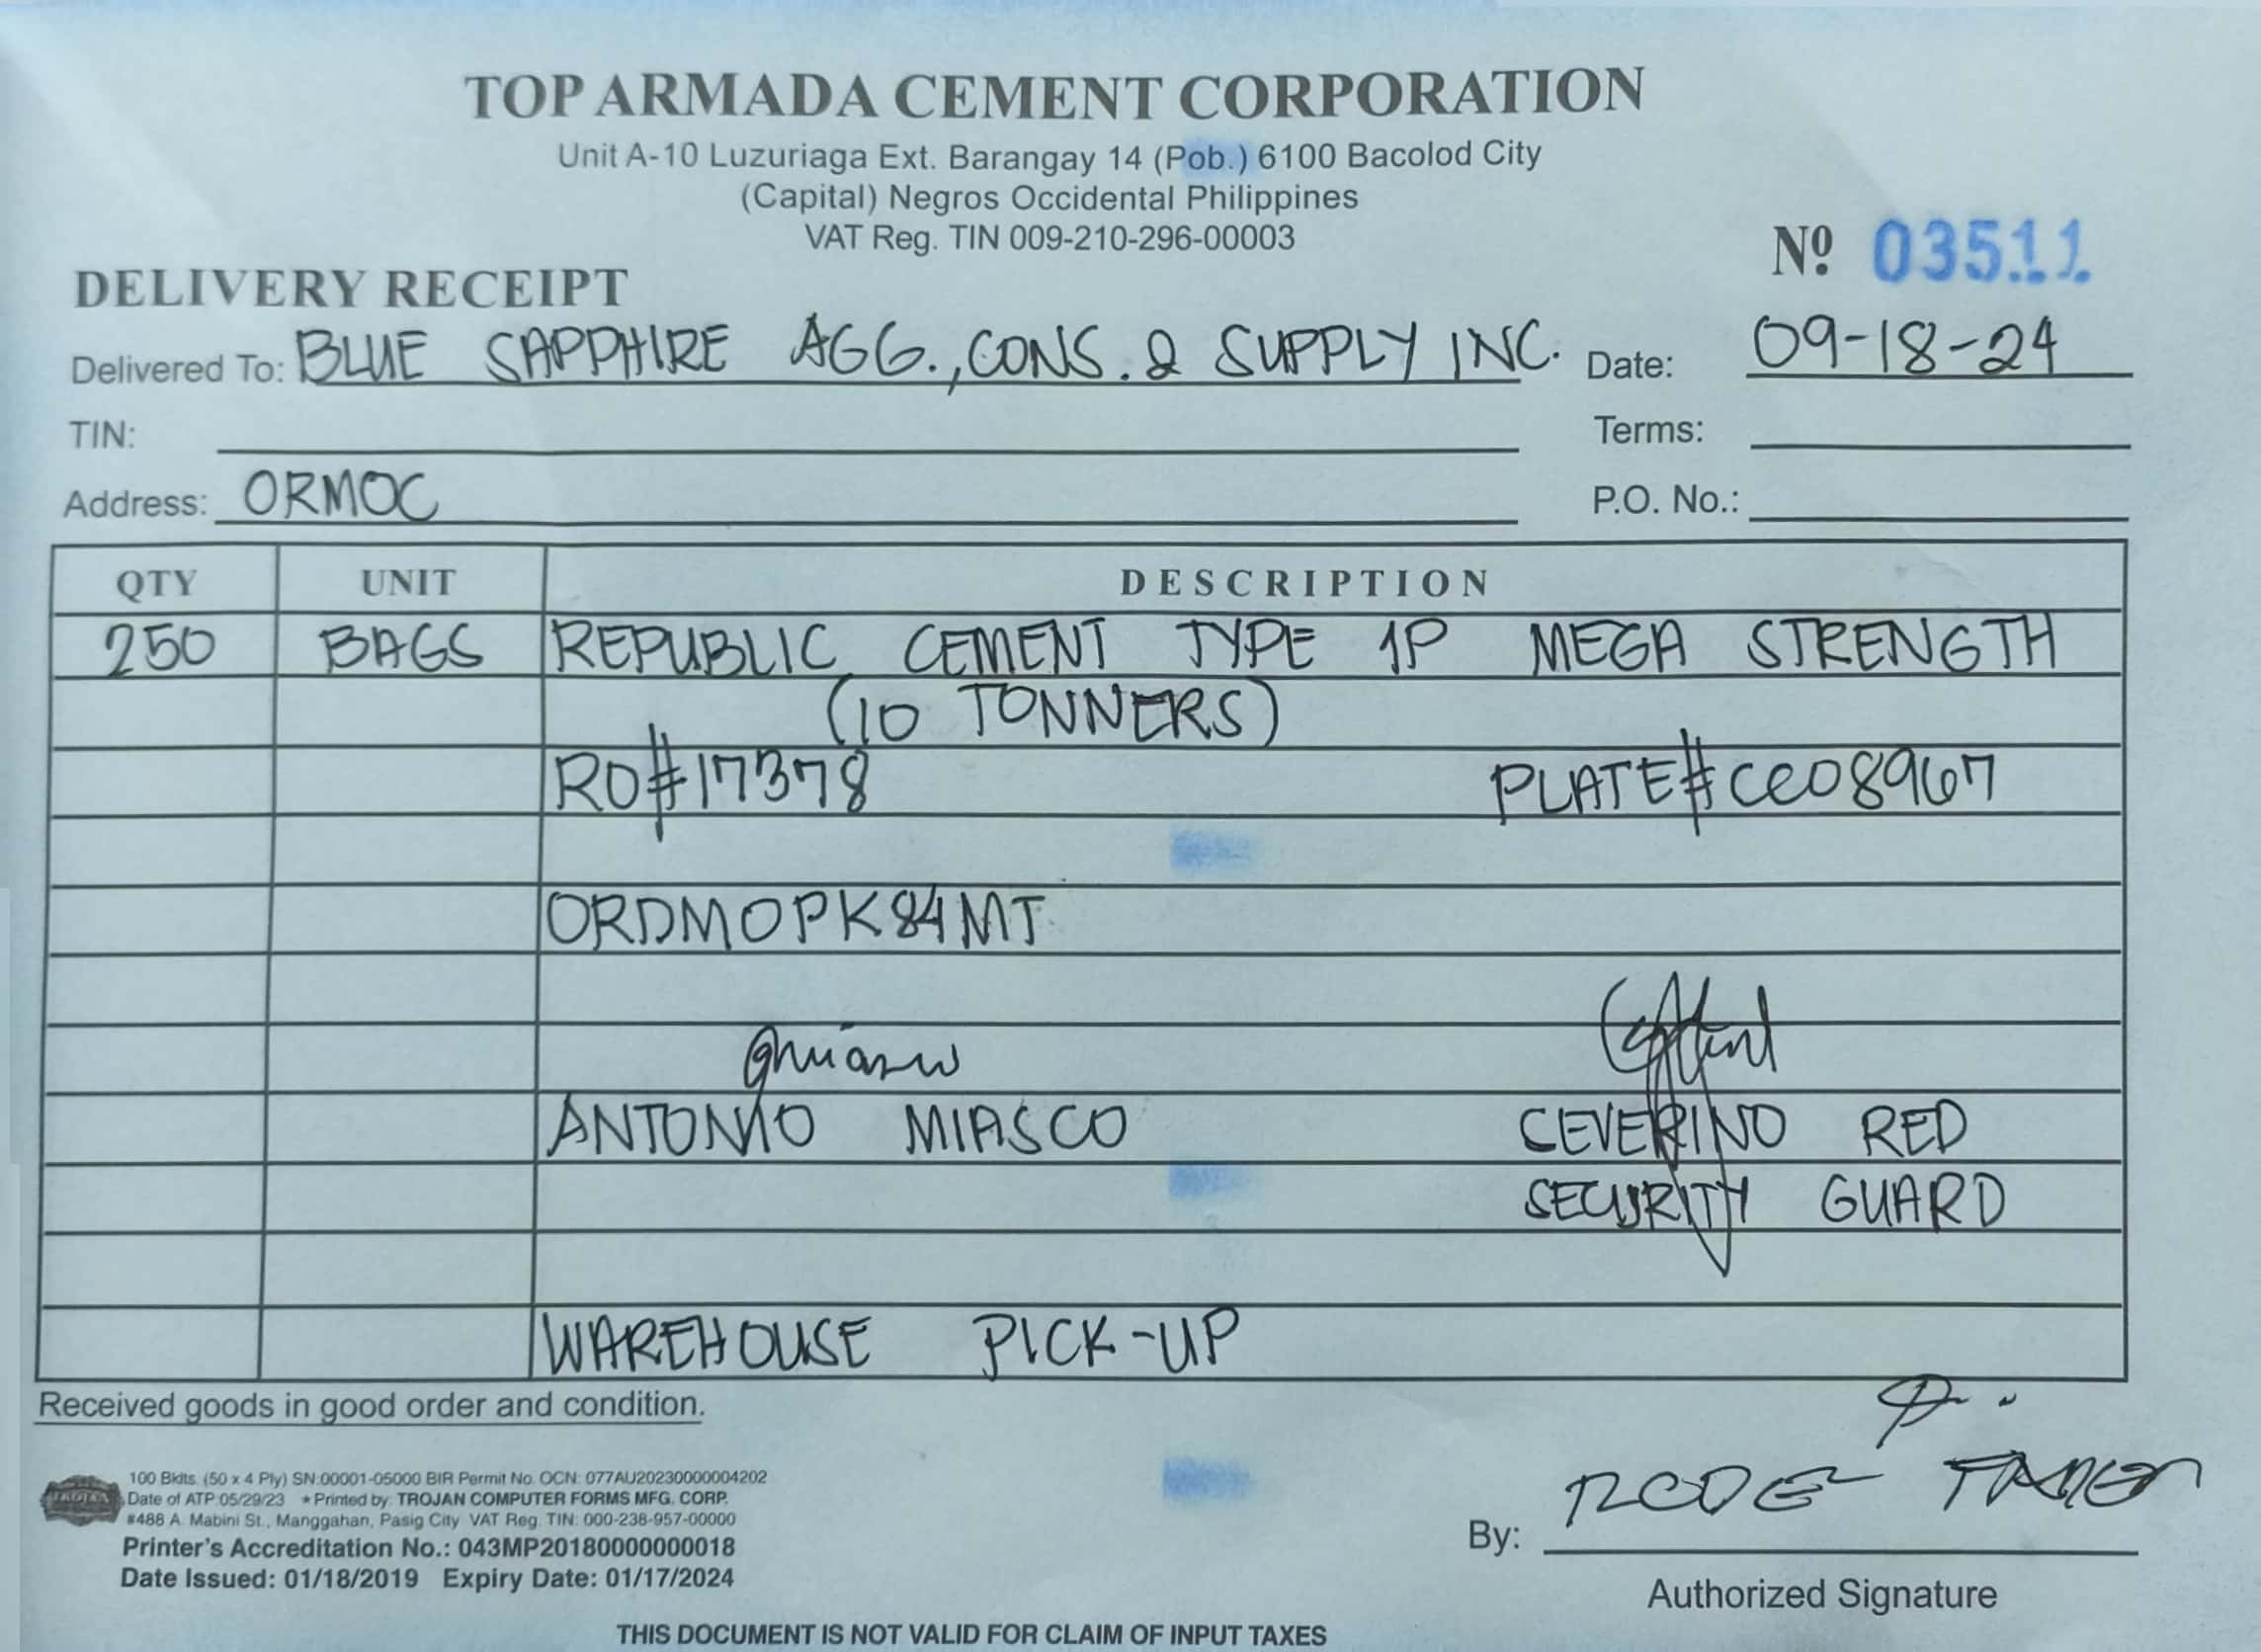 TOP ARMADA CEMENT CORPORATION
Unit A-10 Luzuriaga Ext. Barangay 14 (Pob.) 6100 Bacolod City
(Capital) Negros Occidental Philippines
VAT Reg. TIN 009-210-296-00003
Nº 03511
DELIVERY RECEIPT
Delivered To: BLUE SAPPHIRE AGG., CONS. & SUPPLY INC. Date: 09-18-24
TIN: Terms:
Address: ORMOC P.O. No.:
QTY UNIT DESCRIPTION
250 BAGS REPUBLIC CEMENT TYPE 1P MEGA STRENGTH
(10 TONNERS)
RO#17378 PLATE#CEO8967
ORDMOPK84MT
ANTONIO MIASCO CEVERINO RED
SECURITY GUARD
WAREHOUSE PICK-UP
Received goods in good order and condition.
100 Bklts. (50 x 4 Ply) SN:00001-05000 BIR Permit No. OCN: 077AU20230000004202
Date of ATP:05/29/23 * Printed by: TROJAN COMPUTER FORMS MFG. CORP.
#488 A. Mabini St., Manggahan, Pasig City VAT Reg. TIN: 000-238-957-00000
Printer's Accreditation No.: 043MP20180000000018
Date Issued: 01/18/2019 Expiry Date: 01/17/2024
By: RODEL
Authorized Signature
THIS DOCUMENT IS NOT VALID FOR CLAIM OF INPUT TAXES